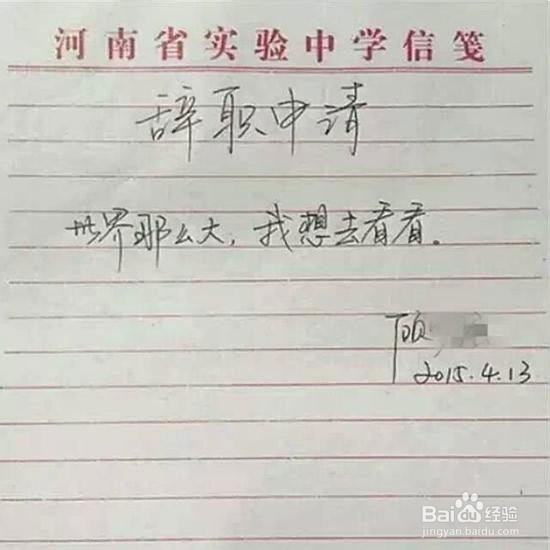 河南省实验中学信笺
辞职申请
世界那么大，我想去看看。
顾
2015.4.13
Baidu经验
jingyan.baidu.com